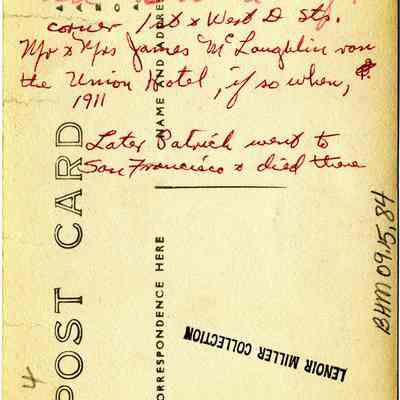 corner 1st & West D Sts.
Mr & Mrs James McLaughlin
the Union Hotel, if so when,
1911
Later Patrick went to
San Francisco & died there
POST CARD
NAME AND ADDRE
ORRESPONDENCE HERE
LENOIR MILLER COLLECTION
BHM 09.15.84
4